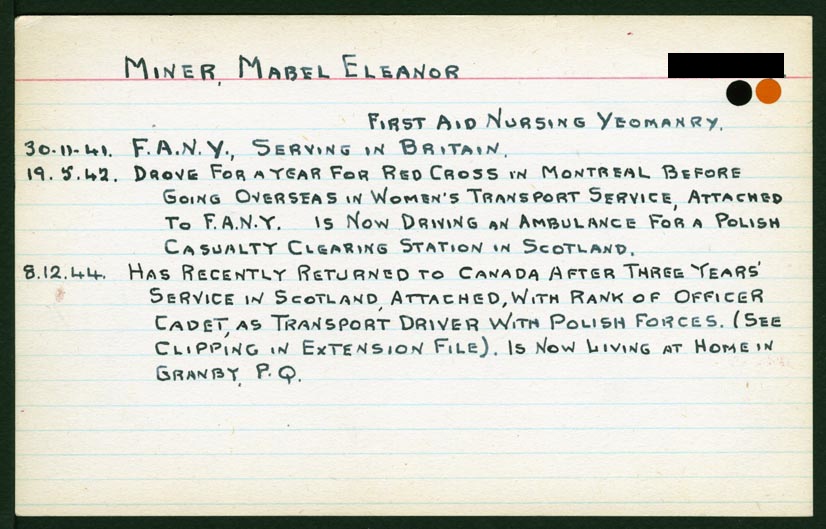 MINER, MABEL ELEANOR
FIRST AID NURSING YEOMANRY.
30-11-41. F.A.N.Y., SERVING IN BRITAIN.
19.5.42. DROVE FOR A YEAR FOR RED CROSS IN MONTREAL BEFORE
GOING OVERSEAS IN WOMEN'S TRANSPORT SERVICE, ATTACHED
TO F.A.N.Y. IS NOW DRIVING AN AMBULANCE FOR A POLISH
CASUALTY CLEARING STATION IN SCOTLAND.
8.12.44. HAS RECENTLY RETURNED TO CANADA AFTER THREE YEARS'
SERVICE IN SCOTLAND, ATTACHED, WITH RANK OF OFFICER
CADET, AS TRANSPORT DRIVER WITH POLISH FORCES. (SEE
CLIPPING IN EXTENSION FILE). IS NOW LIVING AT HOME IN
GRANBY, P.Q.